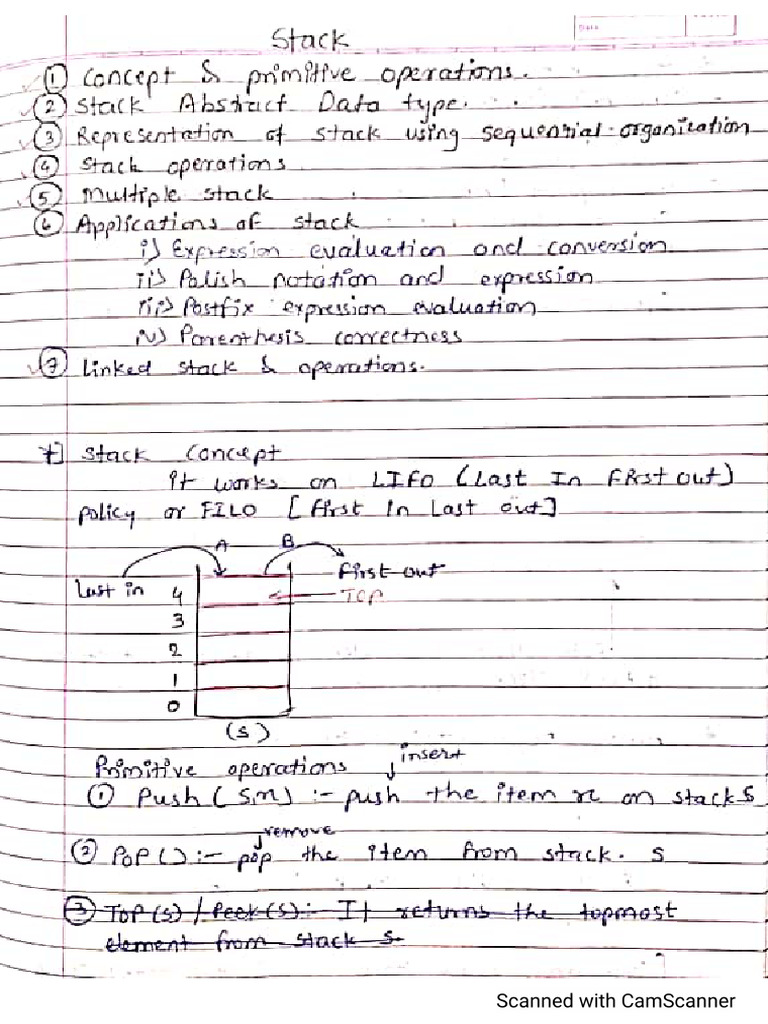 Stack
Date
① Concept & primitive operations.
② Stack Abstract Data type.
③ Representation of stack using sequential organization
④ Stack operations
⑤ Multiple stack
⑥ Applications of stack
i) Expression evaluation and conversion
ii) Polish notation and expression
iii) Postfix expression evaluation
iv) Parenthesis correctness
⑦ Linked stack & operations.
*] Stack Concept
It works on LIFO (Last In First out)
policy or FILO [First In Last out]
A B
First out
Last in 4 TOP
3
2
1
0
(S)
Primitive operations insert
① Push(S,x) :- push the item x on stack S
remove
② POP() :- pop the item from stack. S
③ TOP(s) / Peek(s) :- It returns the topmost
element from stack s.
Scanned with CamScanner